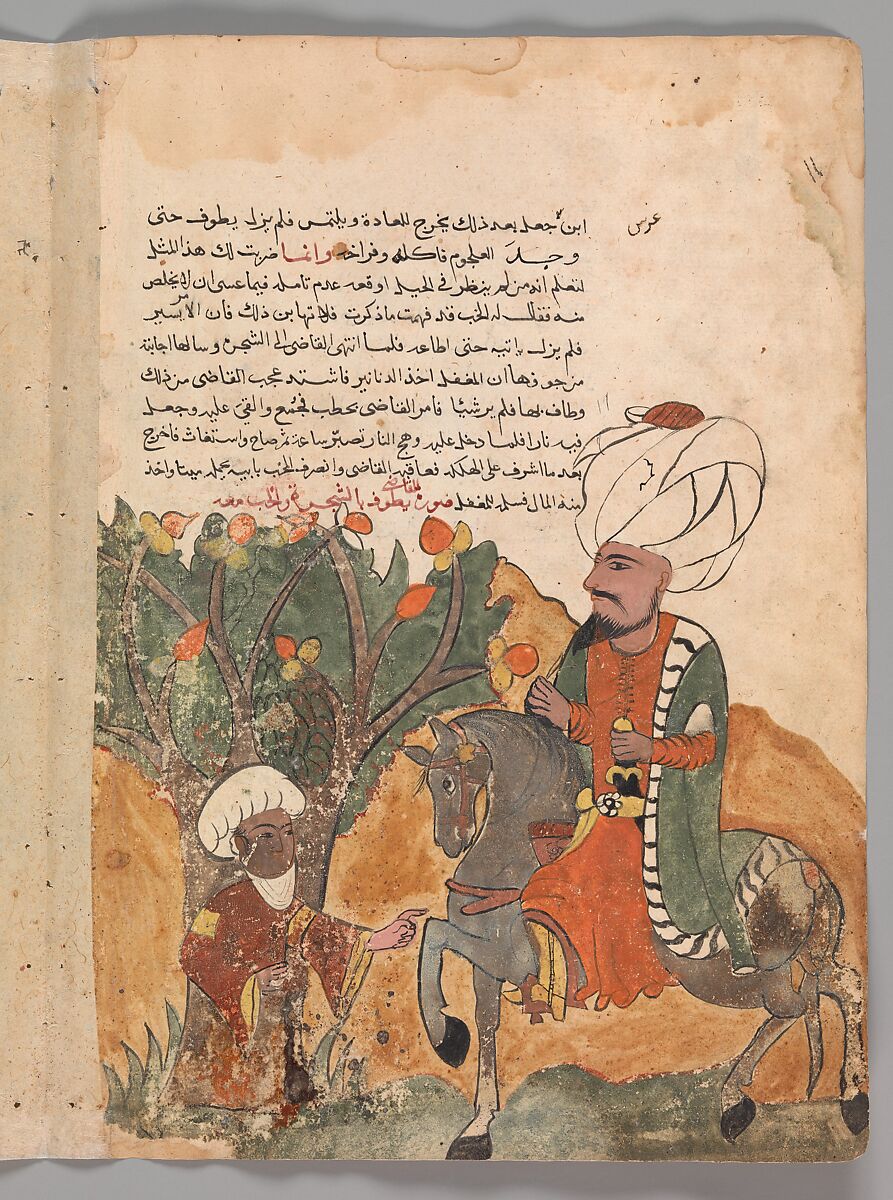 ابن جعل بعد ذلك يخرج للعادة ويلتمس فلم يزل يطوف حتى
عرس
وجد العلجوم فاكله وفراخه وانما ضربت لك هذا المثل
لتعلم انه من لم ينظر في الحيل اوقعه عدم تامله فيما عسى ان لا يخلص
منه فقال له الخب قد فهمت ما ذكرت فلا تهابن ذلك فان الامر يسير
فلم يزل بابيه حتى اطاعه فلما انتهى القاضى الى الشجرة وسالها اجابته
من جوفها ان المغفل اخذ الدنانير فاشتد عجب القاضى من ذلك
وطاف بها فلم ير شيئا فامر القاضى بحطب فجمع والقي عليه وجعل
فيه نارا فلما دخل عليه وهج النار تصبر ساعة ثم صاح واستغاث فاخرج
بعد ما اشرف على الهلكة فعاقبه القاضى وانصرف الخب بابيه يحمله ميتا واخذ
منه المال فسلمه للمغفل صورة القاضى يطوف بالشجرة والخب معه